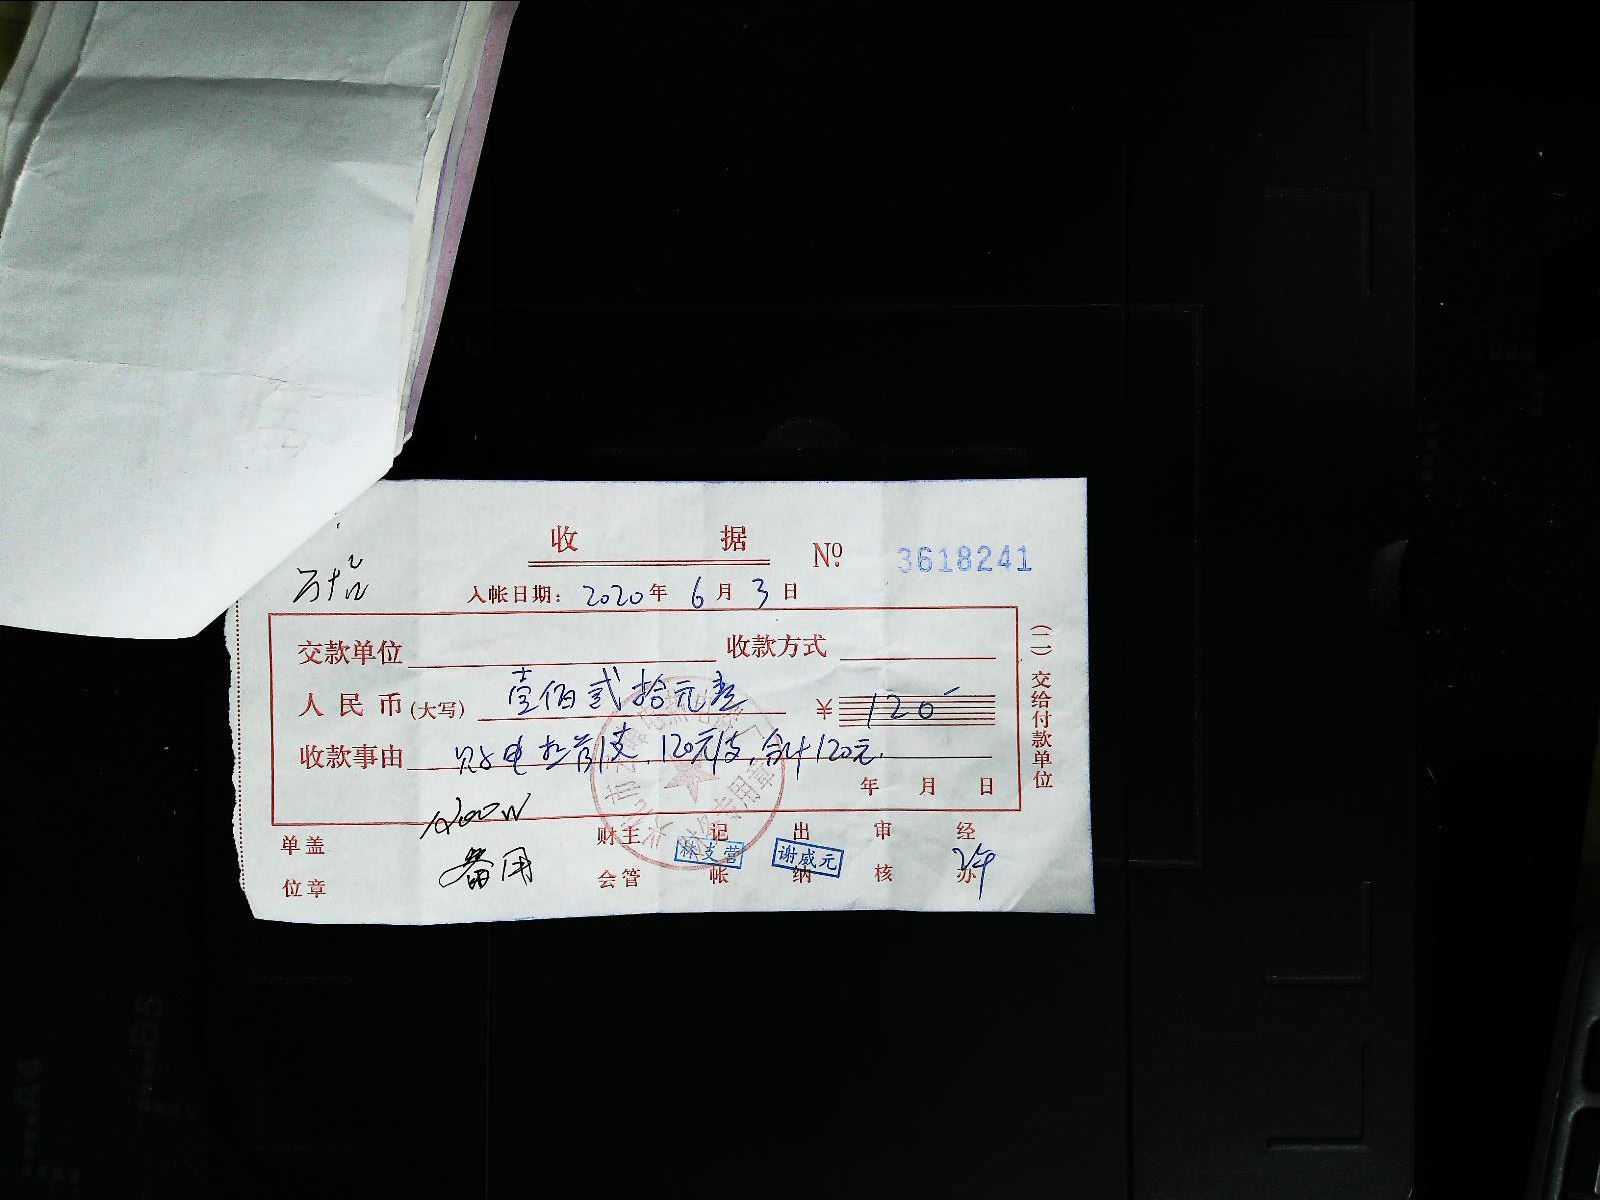 收 据 № 3618241
入帐日期：2020年 6月 3日
交款单位 收款方式
人民币(大写) 壹佰贰拾元整 ￥120
收款事由 1支，120元/支，合计120元.
年 月 日
(二)交给付款单位
1200W
备用
单位盖章 财会主管 记帐 出纳 审核 经办
林支营 谢威元